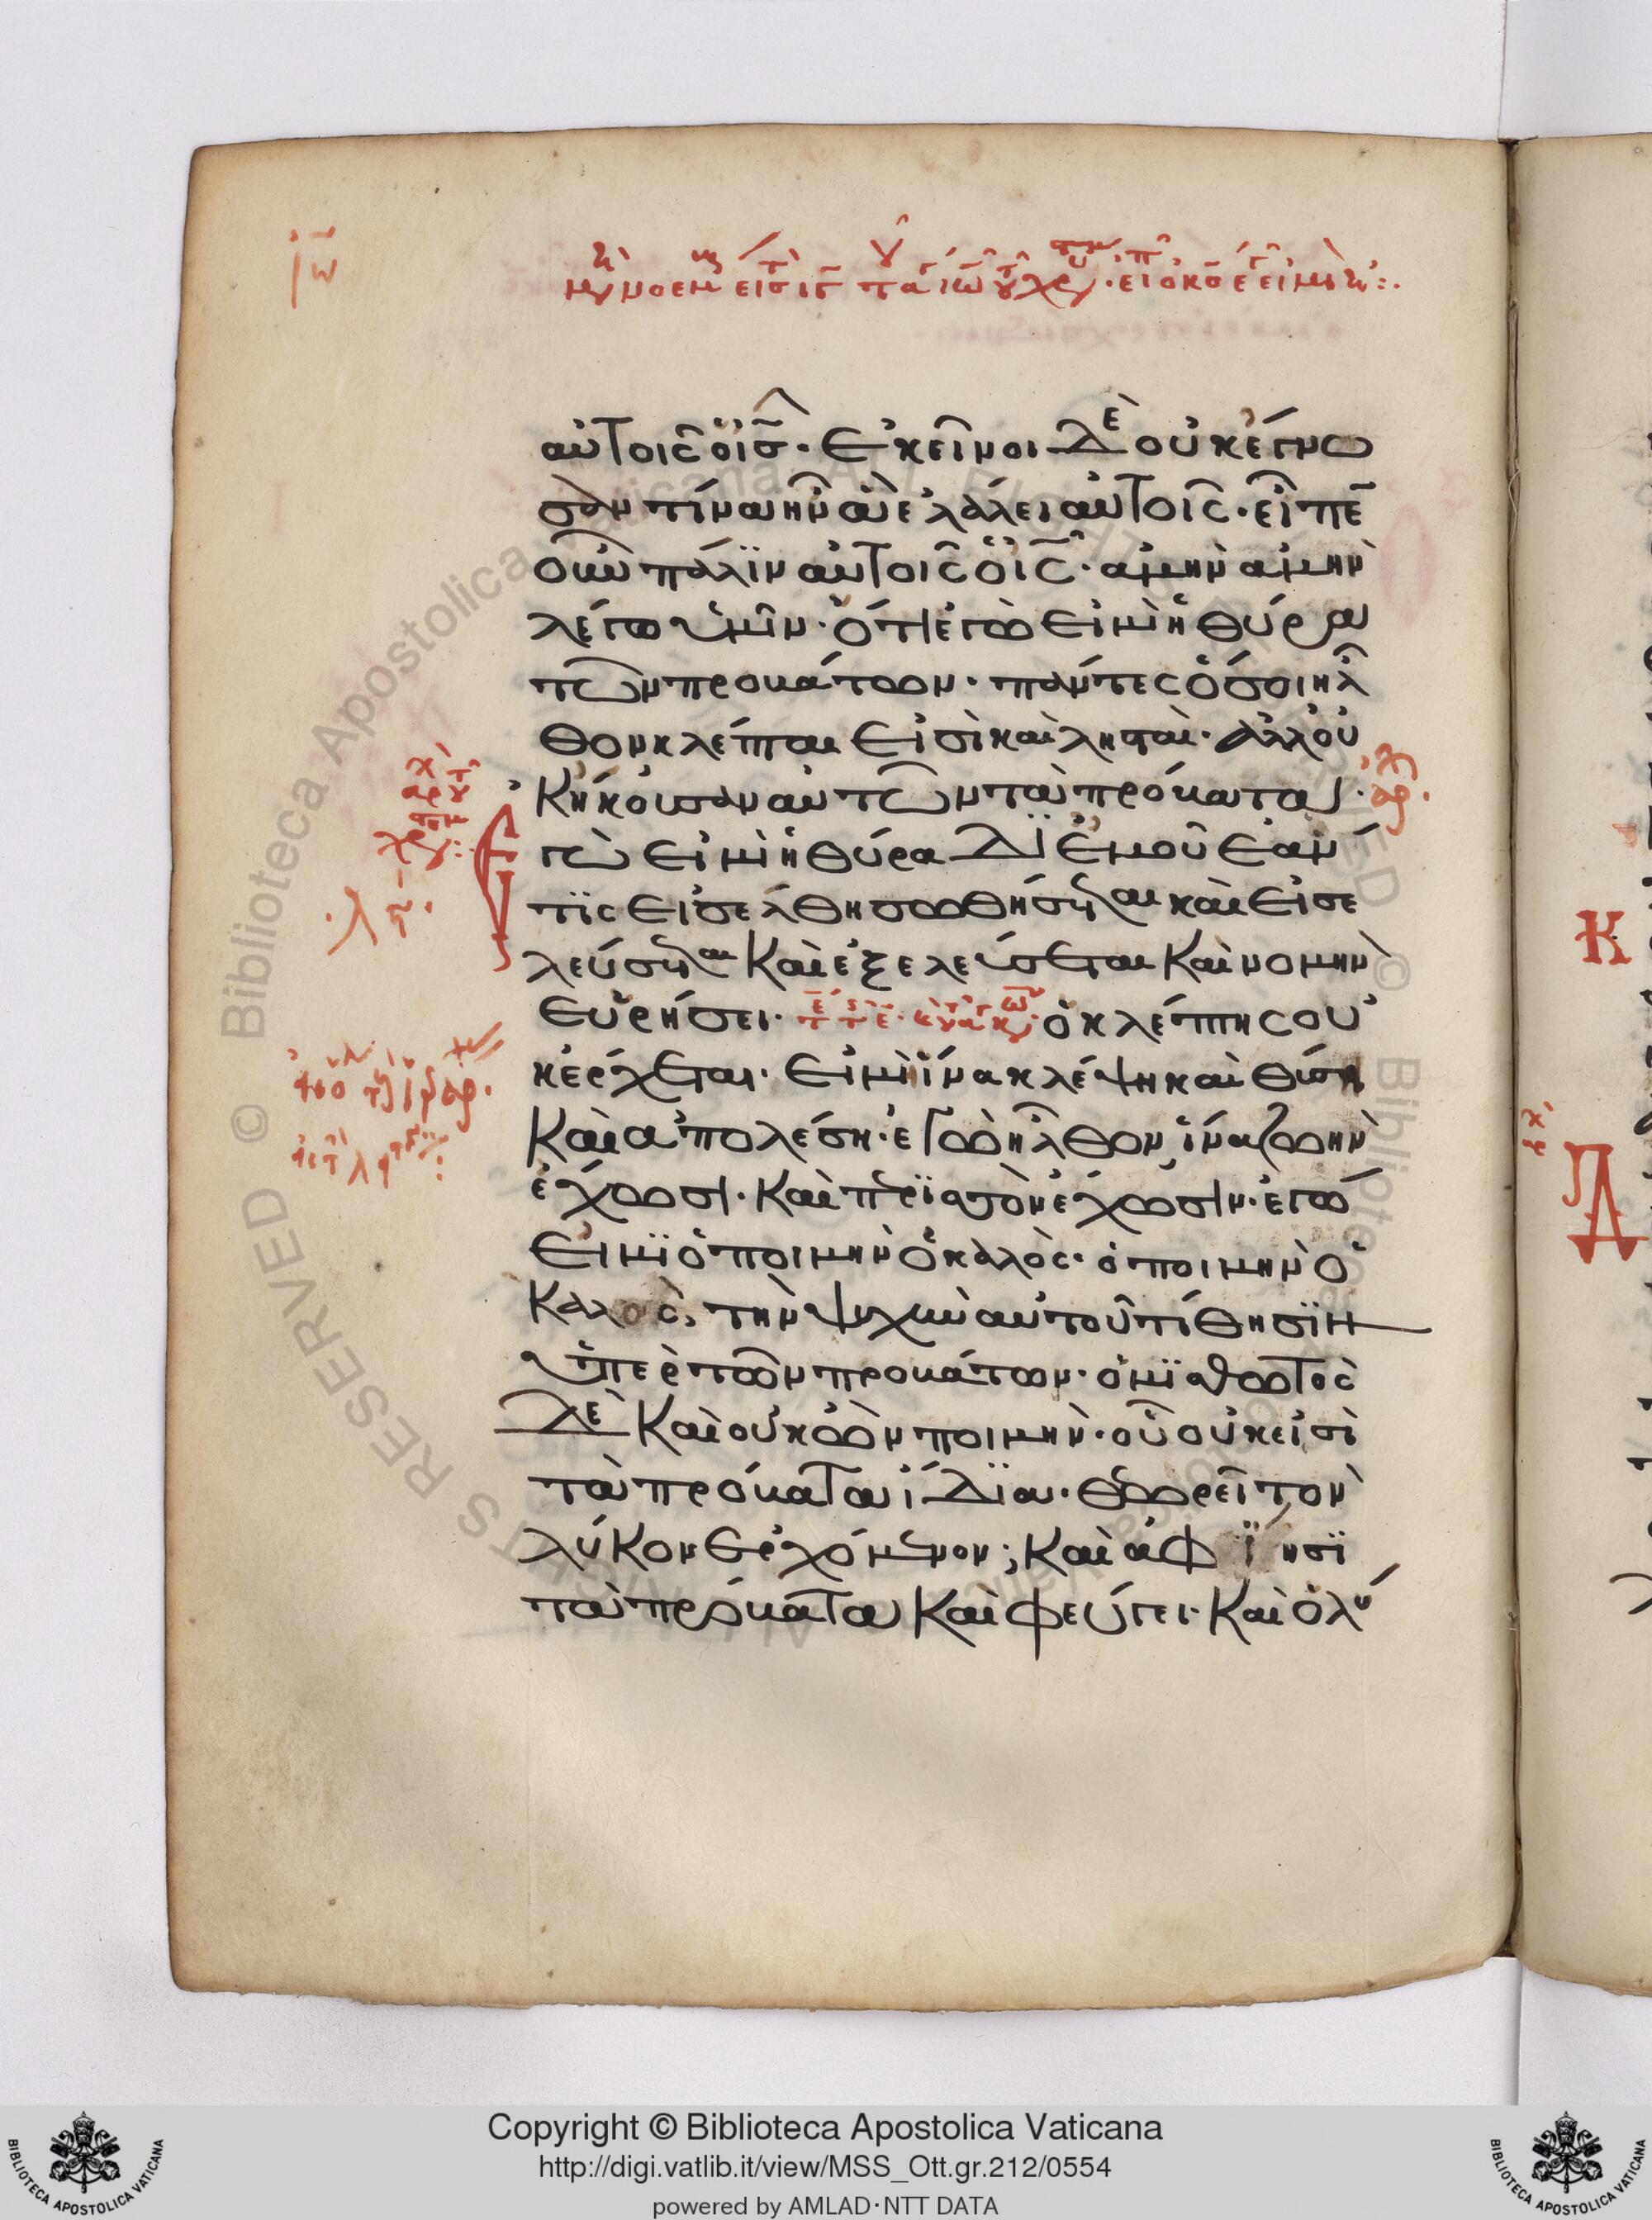 ἰω
αὐτοῖς ὁ ἰς̄· ἐκεῖνοι δὲ οὐκ ἔγνω
σαν τίνα ἦν ἃ ἐλάλει αὐτοῖς· εἶπε
οὖν πάλϊν αὐτοῖς ὁ ἰς̄· ἀμὴν ἀμὴν
λέγω ὑμῖν· ὅτι ἐγὼ εἰμὶ ἡ θύρα
τῶν προβάτων· πάντες ὅσοι ἦλ
θον κλέπται εἰσὶ καὶ λησταὶ· ἀλλ οὐ
κ ἤκουσαν αὐτῶν τὰ πρόβατα·
Ἐγὼ εἰμὶ ἡ θύρα δϊ ἐμοῦ ἐάν
τϊς εἰσέλθη σωθήσεται καὶ εἰσε
λεύσεται καὶ ἐξελεύσεται καὶ νομὴν
εὑρήσει· ὁ κλέπτης οὐ
κ ἔρχεται· εἰ μὴ ἵνα κλέψη καὶ θύση
καὶ ἀπολέση· ἐγὼ ἦλθον ἵνα ζωὴν
ἔχωσι· καὶ περϊσσὸν ἔχωσιν· ἐγώ
εἰμϊ ὁ ποιμὴν ὁ καλὸς· ὁ ποιμὴν ὁ
καλὸς, τὴν ψυχὴν αὐτοῦ τίθησϊν
ὑπὲρ τῶν προβάτων· ὁ μϊσθωτὸς
δὲ καὶ οὐκ ὢν ποιμὴν· οὗ οὐκ εἰσὶ
τὰ πρόβατα ἴδϊα· θεωρεῖ τὸν
λύκον ἐρχόμενον; καὶ ἀφϊησϊ
τὰ πρόβατα καὶ φεύγει· καὶ ὁ λύ
Copyright © Biblioteca Apostolica Vaticana
http://digi.vatlib.it/view/MSS_Ott.gr.212/0554
powered by AMLAD·NTT DATA
BIBLIOTECA APOSTOLICA VATICANA
BIBLIOTECA APOSTOLICA VATICANA